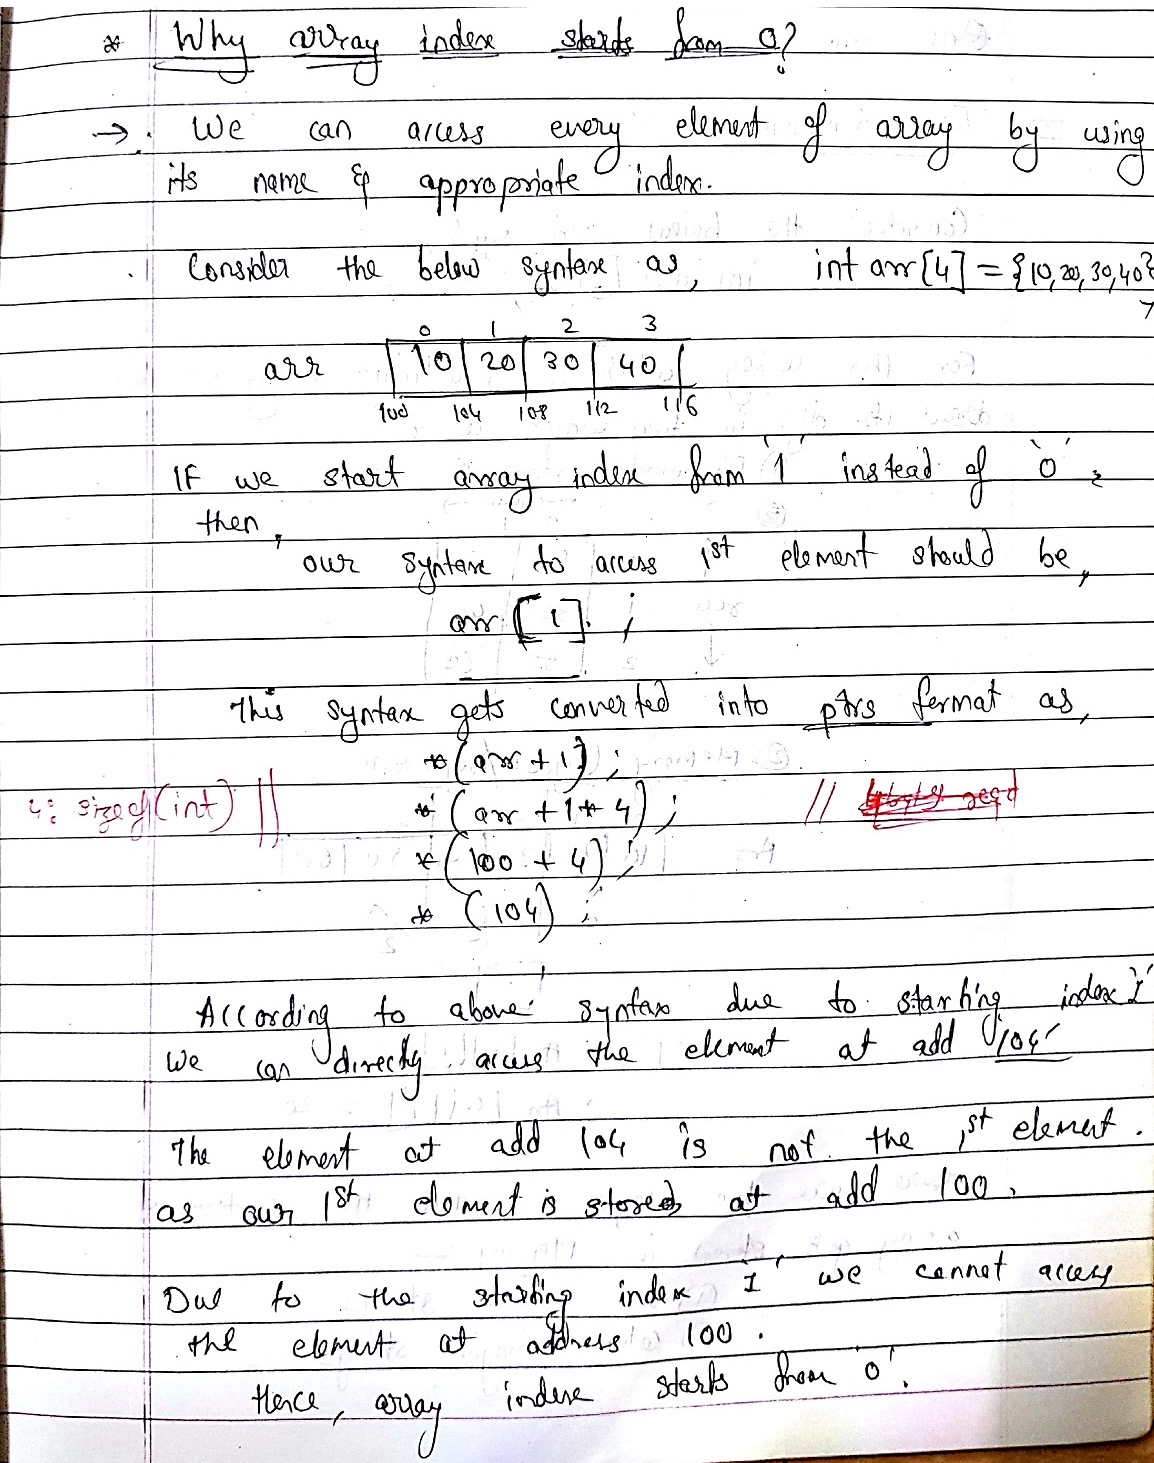 * Why array index starts from 0?
→ . We can access every element of array by using
its name & appropriate index.
. Consider the below syntax as, int arr[4] = {10,20,30,40}
;
0 1 2 3
arr 10 20 30 40
100 104 108 112 116
If we start array index from '1' instead of '0',
then,
our syntax to access 1st element should be,
arr [1];
This syntax gets converted into ptrs format as,
*(arr + 1);
4: sizeof(int) || *(arr + 1 * 4); //
*(100 + 4);
*(104);
According to above syntax due to starting index '1'
we can directly access the element at add '104'
The element at add 104 is not the 1st element.
as our 1st element is stored at add 100.
Due to the starting index '1' we cannot access
the element at address 100.
Hence, array index starts from '0'.